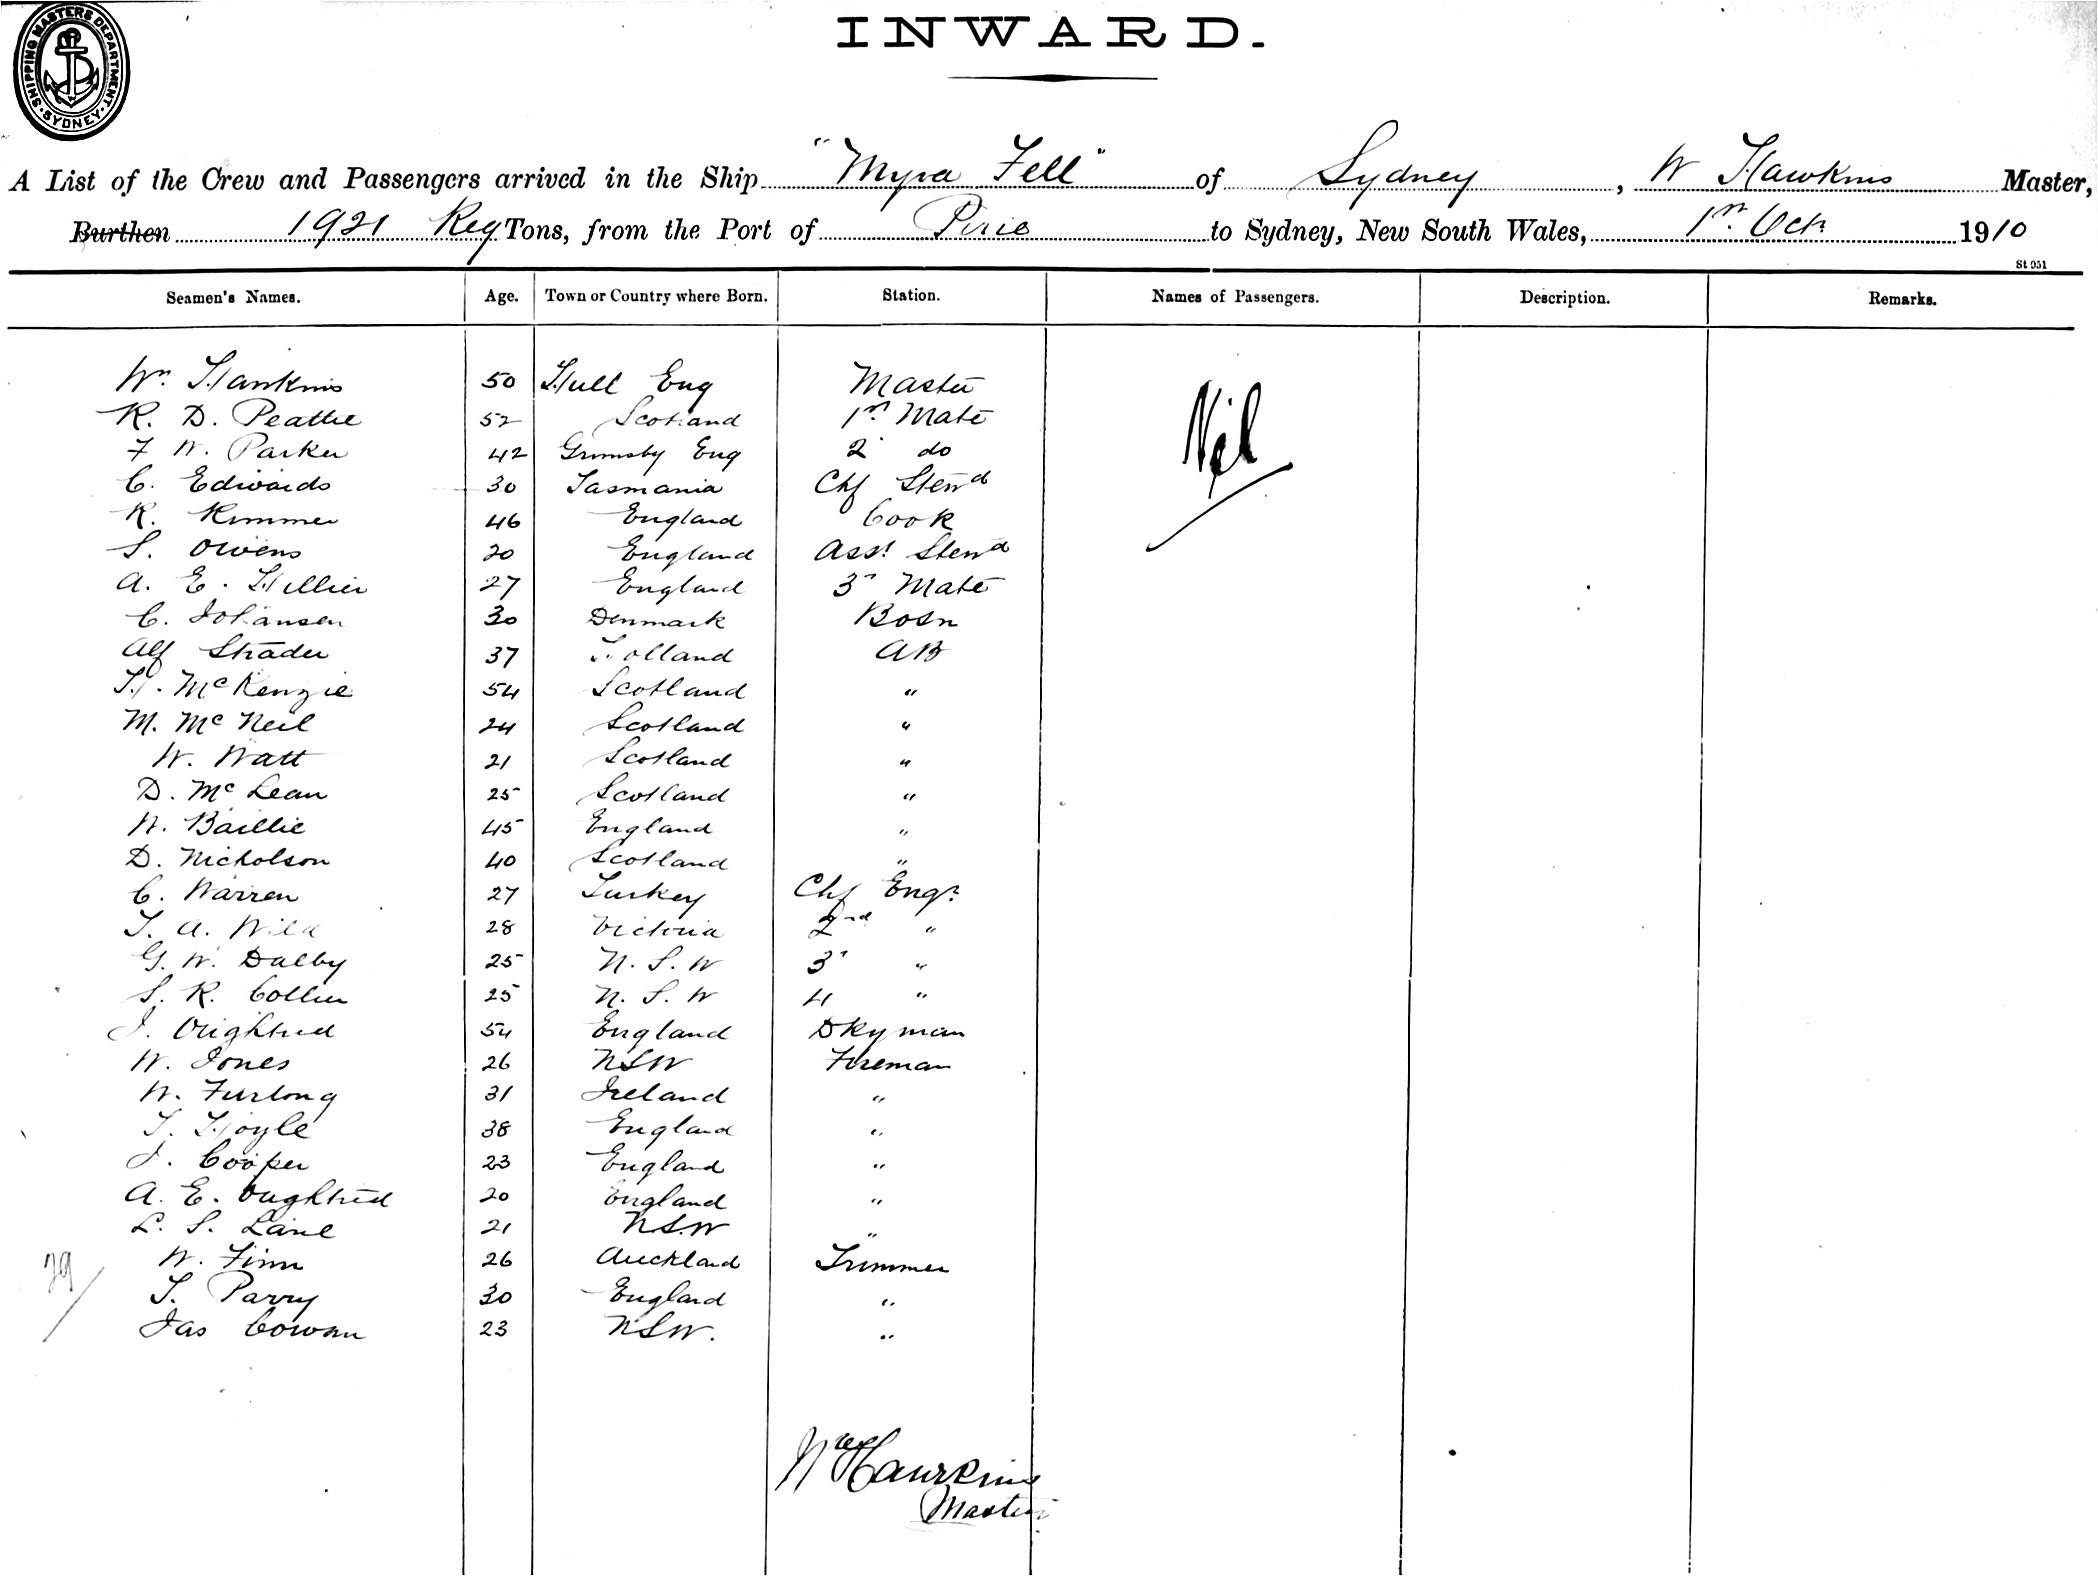 SHIPPING MASTERS DEPARTMENT. SYDNEY
INWARD.
A List of the Crew and Passengers arrived in the Ship "Myra Fell" of Sydney, W Hawkins Master,
Burthen 1921 Reg Tons, from the Port of Pirie to Sydney, New South Wales, 1st Oct 1910
St 951
Seamen's Names. Age. Town or Country where Born. Station. Names of Passengers. Description. Remarks.
Wm Hawkins 50 Hull Eng Master Nil
R. D. Peattie 52 Scotland 1st Mate
F W. Parker 42 Grimsby Eng 2 do
C. Edwards 30 Tasmania Chf Stewd
R. Rimmer 46 England Cook
S. Owens 20 England Asst Stewd
A. E. Hillier 27 England 3 Mate
C. Johansen 30 Denmark Bosn
Alf Strader 37 Holland AB
H. McKenzie 54 Scotland "
M. McNeil 24 Scotland "
W. Watt 21 Scotland "
D. McLean 25 Scotland "
W. Baillie 45 England "
D. Nicholson 40 Scotland "
C. Warren 27 Turkey Chf Engr
T. A. Wild 28 Victoria 2nd "
G. W. Dalby 25 N. S. W 3 "
S. R. Collier 25 N. S. W 4 "
J. Oughtred 54 England Dkyman
W. Jones 26 NSW Fireman
W. Furlong 31 Ireland "
T. Hoyle 38 England "
J. Cooper 23 England "
A. E. Oughtred 20 England "
L. S. Lane 21 N.S.W "
W. Finn 26 Auckland Trimmer
T. Parry 30 England "
Jas Cowan 23 NSW. "
29
Wm Hawkins
Master